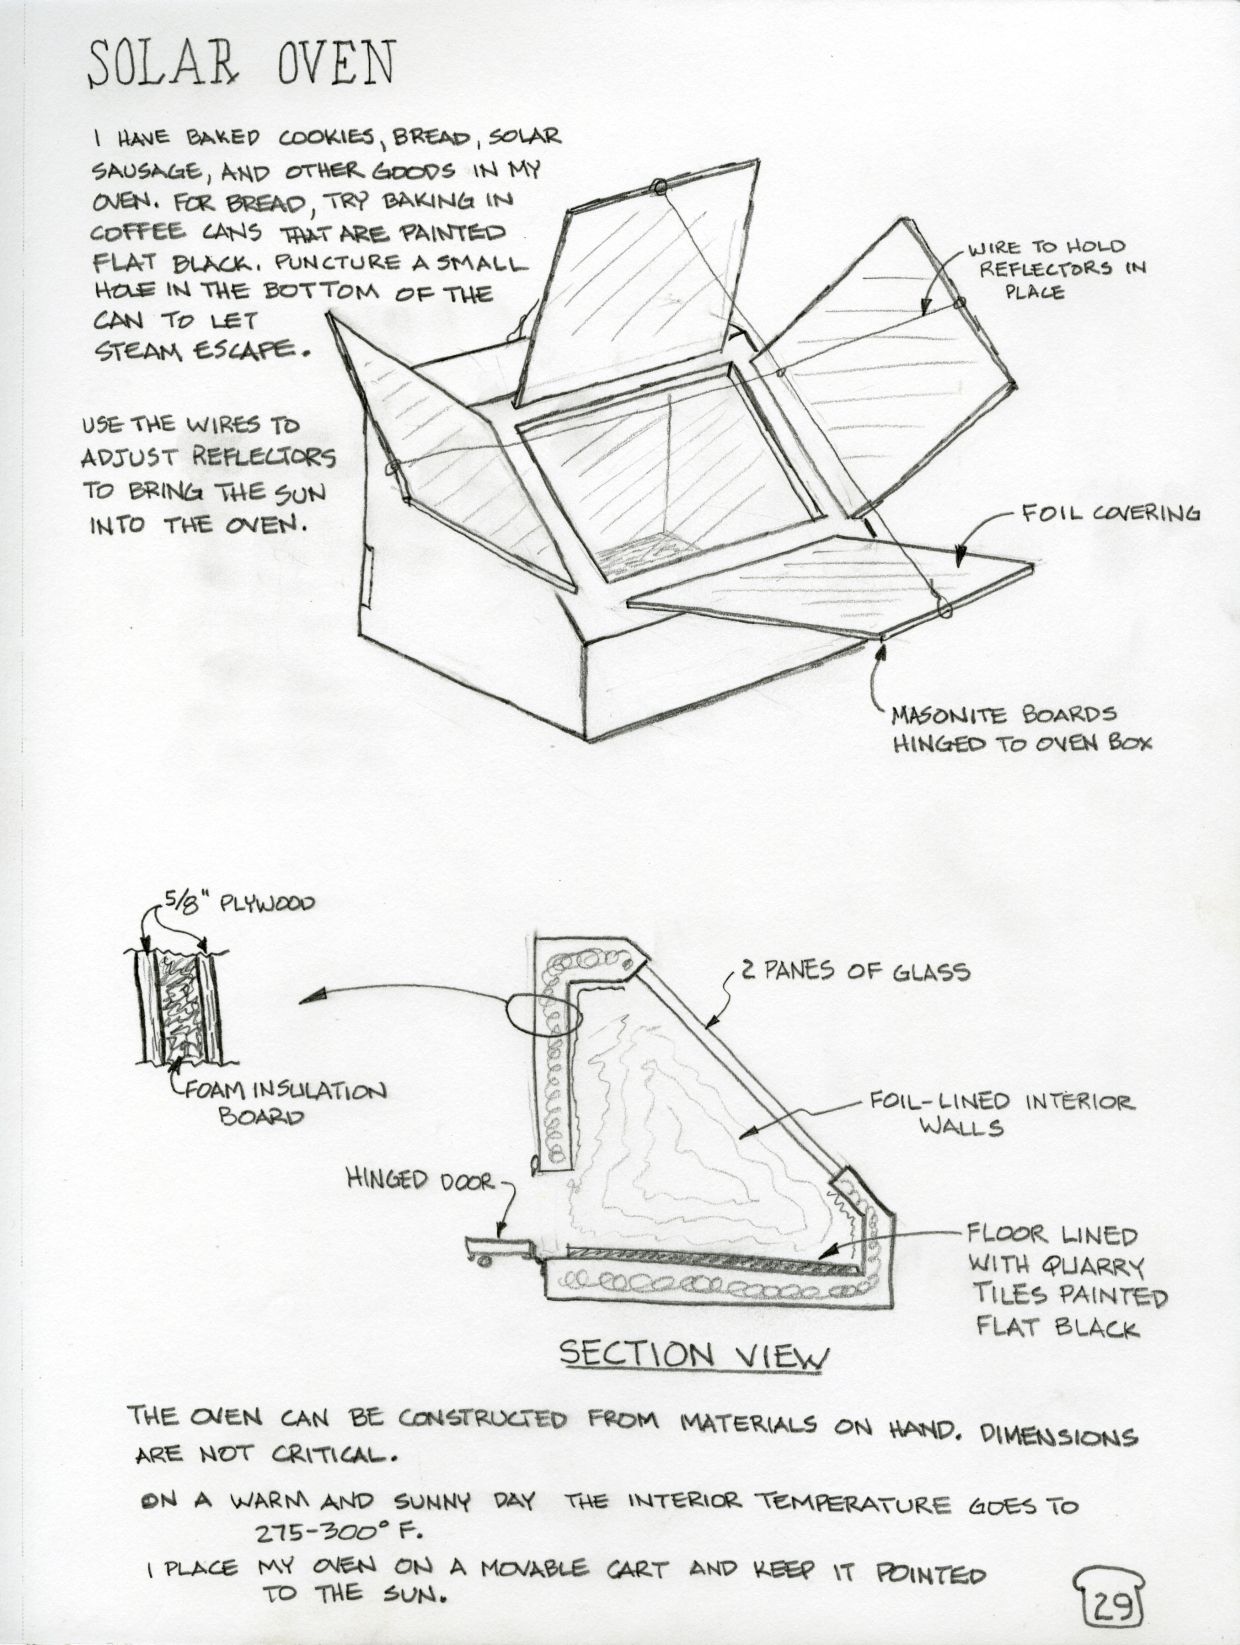 SOLAR OVEN
I HAVE BAKED COOKIES, BREAD, SOLAR
SAUSAGE, AND OTHER GOODS IN MY
OVEN. FOR BREAD, TRY BAKING IN
COFFEE CANS THAT ARE PAINTED
FLAT BLACK. PUNCTURE A SMALL
HOLE IN THE BOTTOM OF THE
CAN TO LET
STEAM ESCAPE.
USE THE WIRES TO
ADJUST REFLECTORS
TO BRING THE SUN
INTO THE OVEN.
WIRE TO HOLD
REFLECTORS IN
PLACE
FOIL COVERING
MASONITE BOARDS
HINGED TO OVEN BOX
5/8" PLYWOOD
FOAM INSULATION
BOARD
2 PANES OF GLASS
FOIL-LINED INTERIOR
WALLS
HINGED DOOR
FLOOR LINED
WITH QUARRY
TILES PAINTED
FLAT BLACK
SECTION VIEW
THE OVEN CAN BE CONSTRUCTED FROM MATERIALS ON HAND. DIMENSIONS
ARE NOT CRITICAL.
ON A WARM AND SUNNY DAY THE INTERIOR TEMPERATURE GOES TO
275-300° F.
I PLACE MY OVEN ON A MOVABLE CART AND KEEP IT POINTED
TO THE SUN.
29